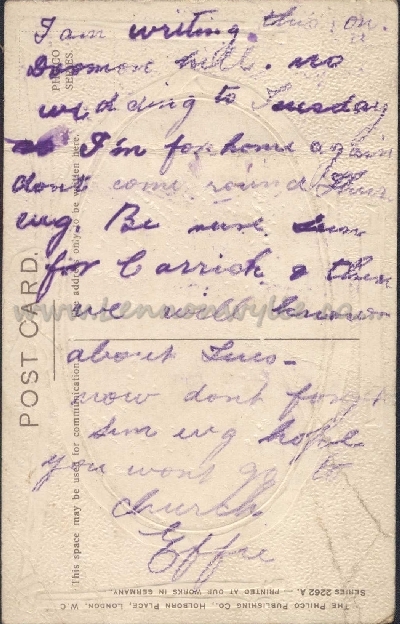 I am writing this on
Dromon hill. no
wedding to Tuesday
I'm for home again
dont come round Thurs
evg. Be sure Sun
for Carrick & then
we will know
about Tues-
now dont forget
Sun evg hope
you wont go to
church
Effie
POST CARD.
PHILCO
SERIES.
This space may be used for communication
The address only to be written here.
THE PHILCO PUBLISHING CO., HOLBORN PLACE, LONDON, W.C.
SERIES 2262 A. — PRINTED AT OUR WORKS IN GERMANY.